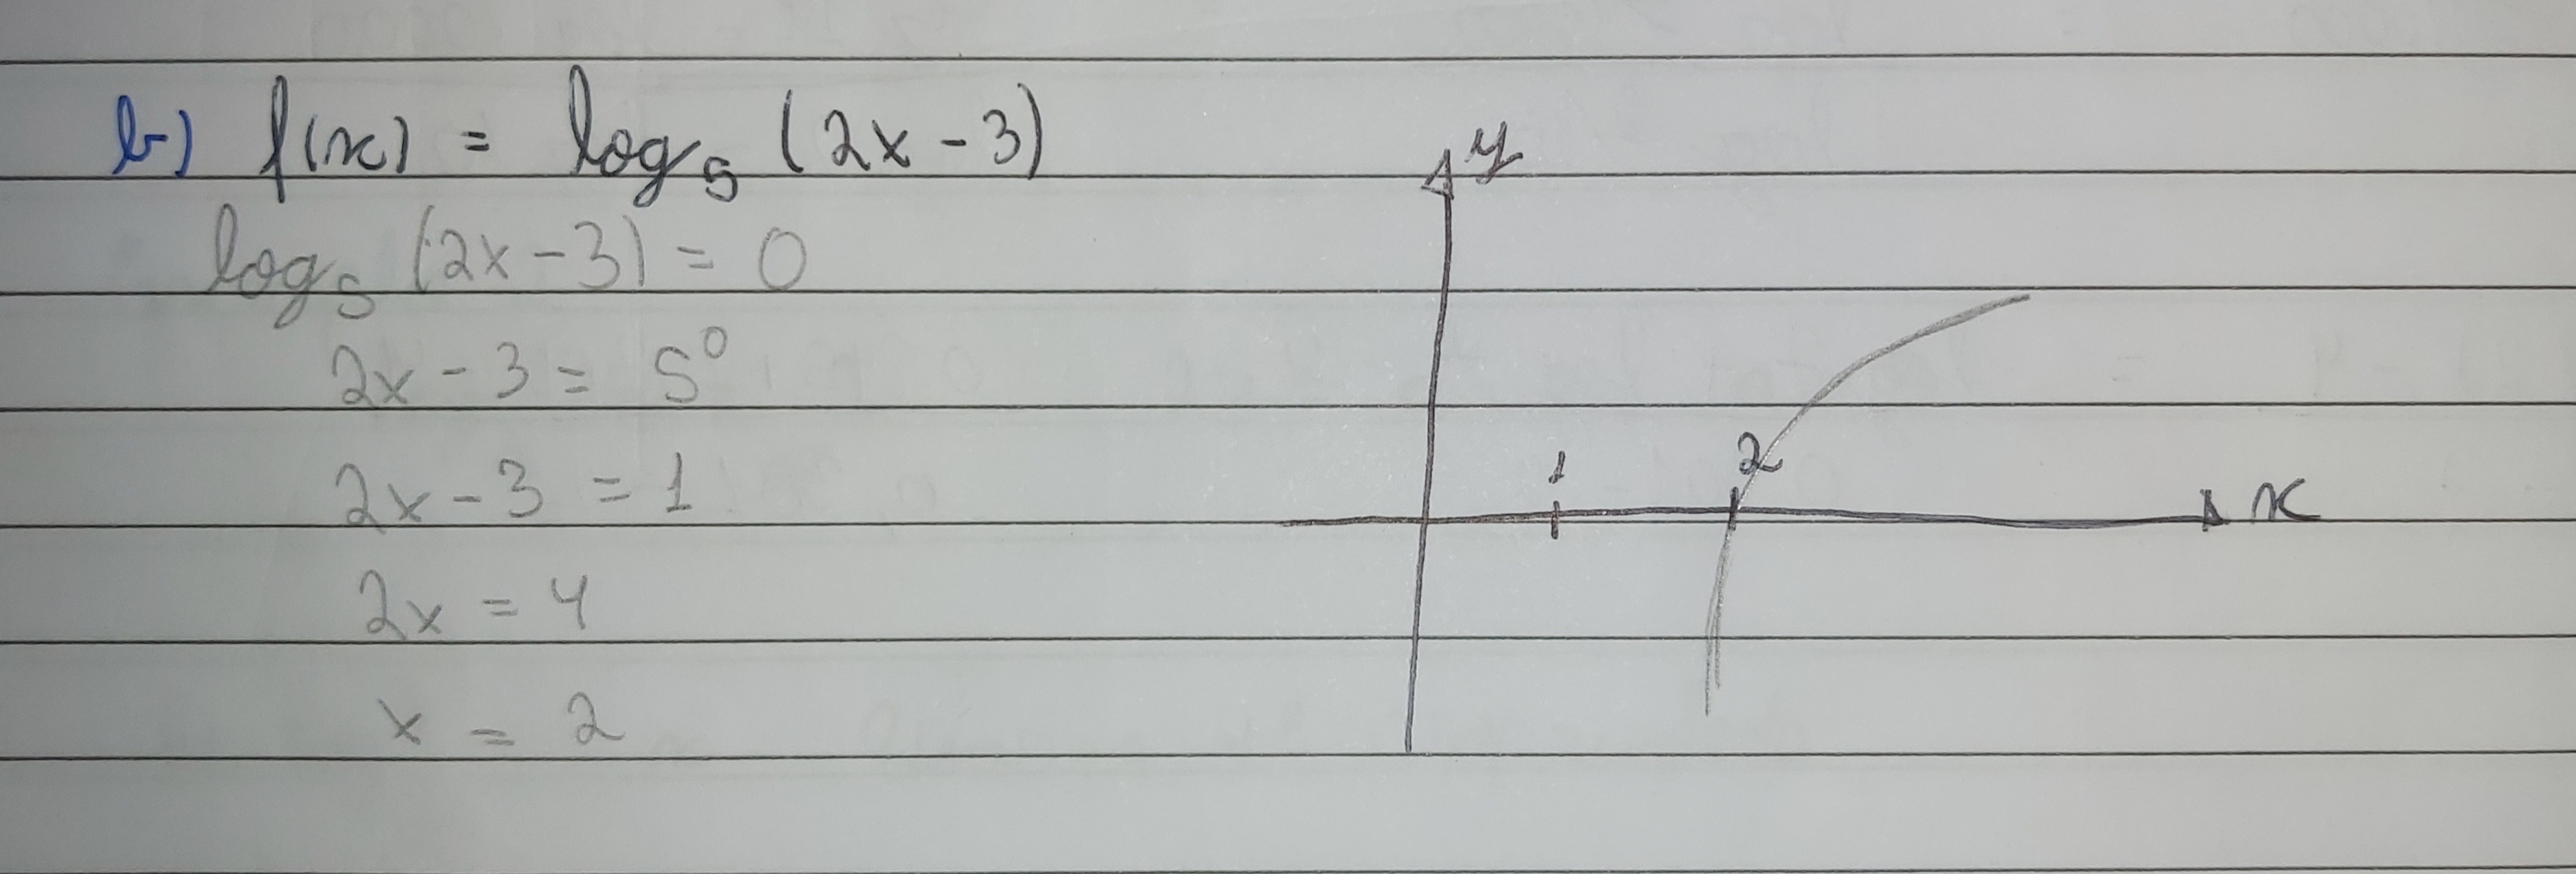 b) f(x) = log₅ (2x - 3)
log₅ (2x - 3) = 0
2x - 3 = 5⁰
2x - 3 = 1
2x = 4
x = 2
y
1 2
x